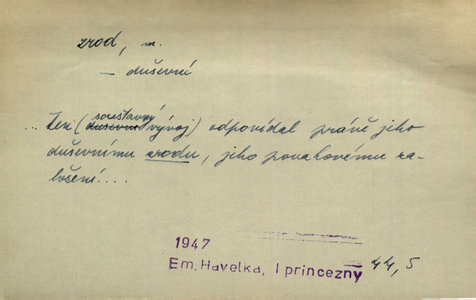 zrod, m.
– duševní
... Ten (soustavný duševní vývoj) odpovídal právě jeho
duševnímu zrodu, jeho povahovému za-
ložení....
1947
Em. Havelka, I princezny 44, 5